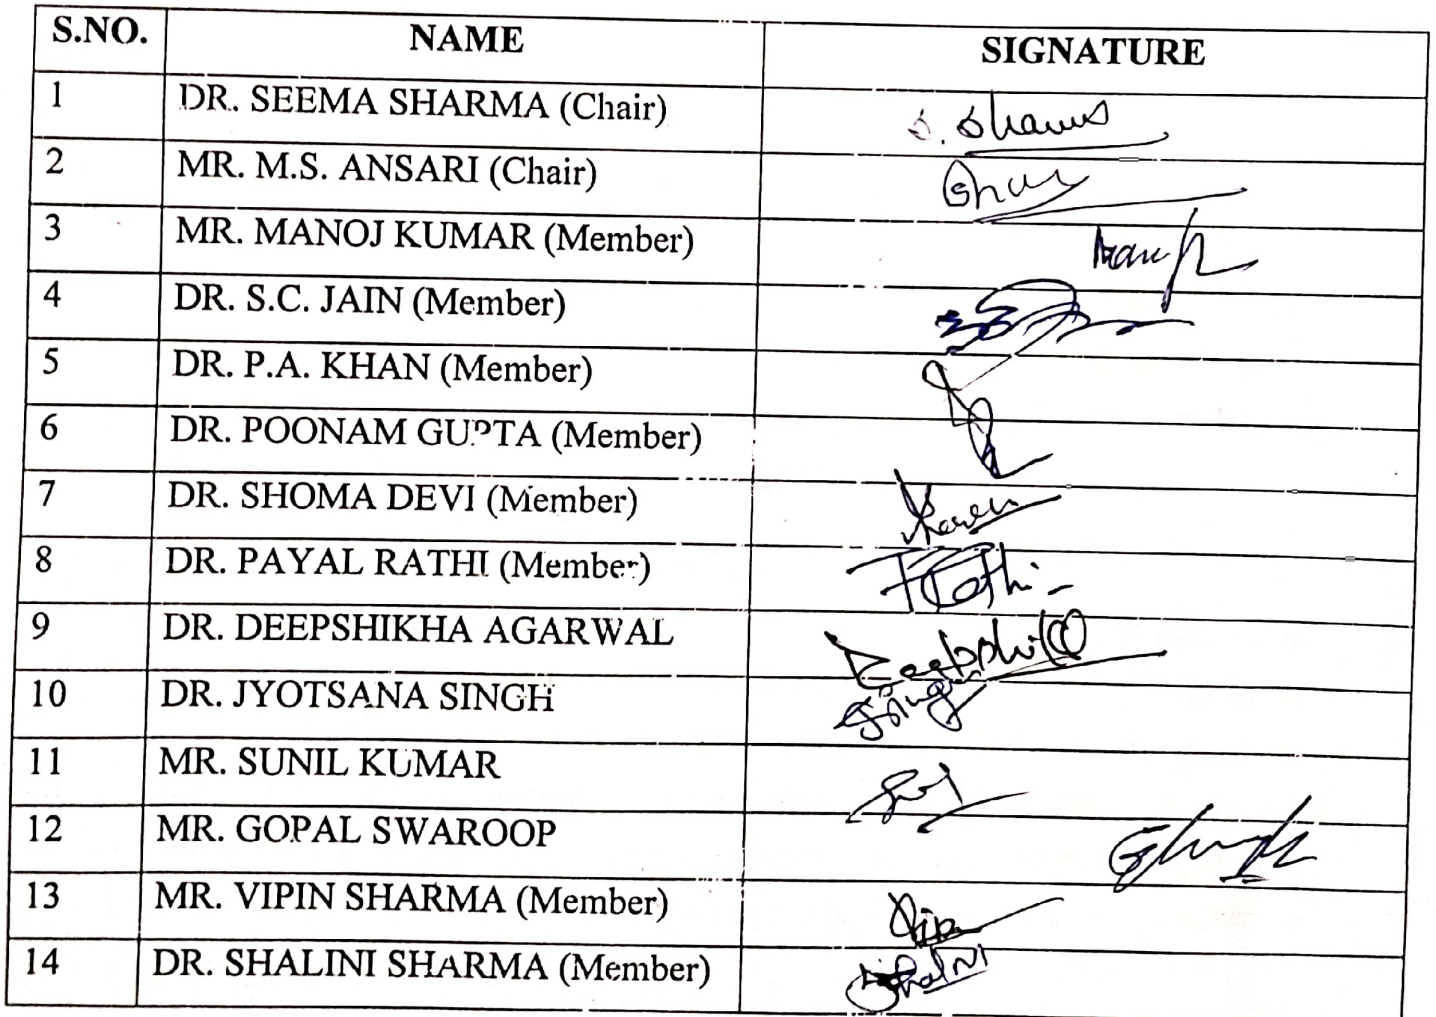 S.NO. NAME SIGNATURE
1 DR. SEEMA SHARMA (Chair) S. Sharma
2 MR. M.S. ANSARI (Chair)
3 MR. MANOJ KUMAR (Member)
4 DR. S.C. JAIN (Member)
5 DR. P.A. KHAN (Member)
6 DR. POONAM GUPTA (Member)
7 DR. SHOMA DEVI (Member)
8 DR. PAYAL RATHI (Member)
9 DR. DEEPSHIKHA AGARWAL
10 DR. JYOTSANA SINGH
11 MR. SUNIL KUMAR
12 MR. GOPAL SWAROOP
13 MR. VIPIN SHARMA (Member)
14 DR. SHALINI SHARMA (Member) Shalini